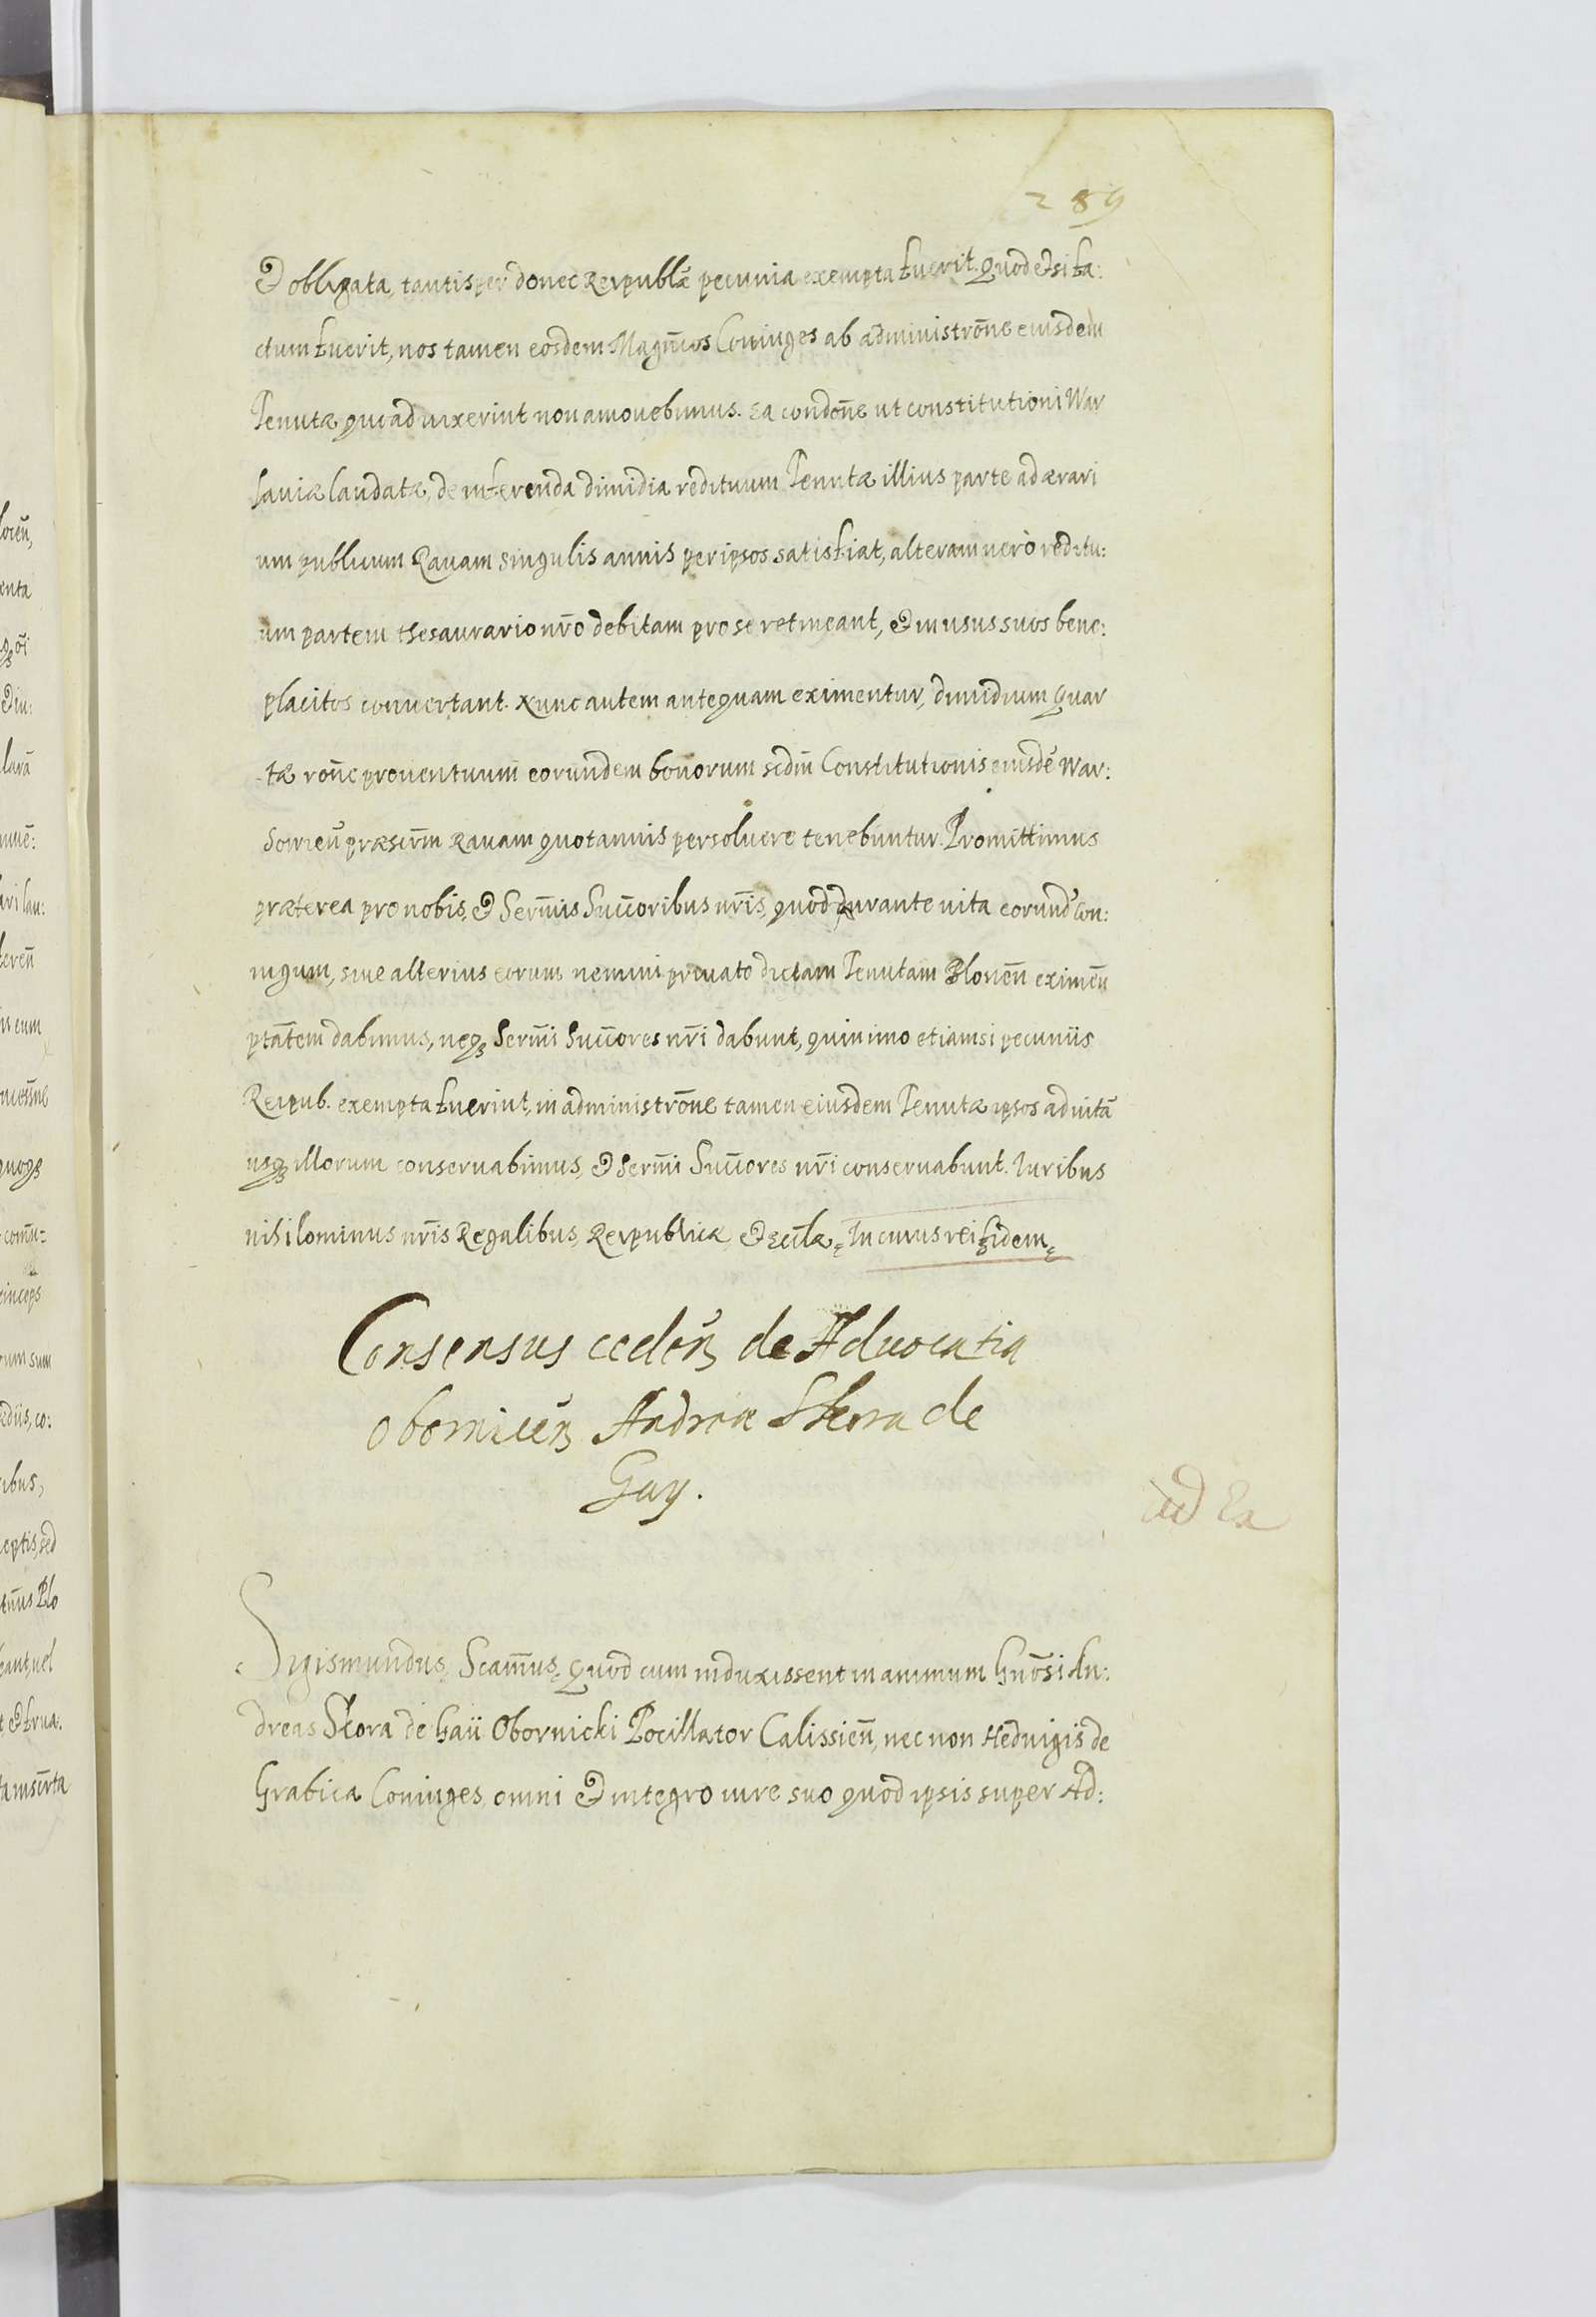 289
& obligata, tantisper donec Reipublæ pecunia exempta fuerit. Quod etsi fa:
ctum fuerit, nos tamen eosdem Magn̄cos Coniuges ab administrōne eiusdem
Tenutæ quoad vixerint non amovebimus. Ea condōne ut constitutioni War
saviæ laudatæ, de inferenda dimidia redituum Tenutæ illius parte ad ærari
um publicum Ravam singulis annis per ipsos satisfiat, alteram verò reditu:
um partem thesaurario nr̄o debitam pro se retineant, & in usus suos bene:
placitos convertant. Nunc autem antequam eximentur, dimidium quar
tæ rōne proventuum eorundem bonorum scdm̄ Constitutionis eiusdē War:
præterea pro nobis, & Serm̄is Succ̄oribus nr̄is, quod durante vita eorund̄ Con:
iugum, sive alterius eorum nemini privato dictam Tenutam Blonen̄ eximen̄
ptātem dabimus, neq₃ Serm̄i Succ̄ores nr̄i dabunt, quinimo etiamsi pecuniis
Reipub. exempta fuerint, in administrōne tamen eiusdem Tenutæ ipsos ad vitā
usq₃ illorum conservabimus, & Serm̄i Succ̄ores nr̄i conservabunt. Iuribus
nihilominus nr̄is Regalibus, Reipublicæ, & Eccl̄æ. In cuius rei fidem.
Consensus ceden̄ de Advocatia
Obornicen̄ Andreæ Skora de
Gay.
ad Ex
Sigismundus, Scam̄us, Quod cum induxissent in animum Gnōsi An:
dreas Skora de Gaii Obornicki Pocillator Calissien̄, nec non Hedvigis de
Grabica Coniuges, omni & integro iure suo quod ipsis super Ad: